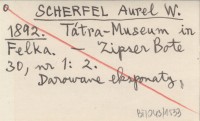 SCHERFEL Aurel W.
1892. Tátra-Museum in
Felka. — Zipser Bote
30, nr 1: 2.
Darowane eksponaty.